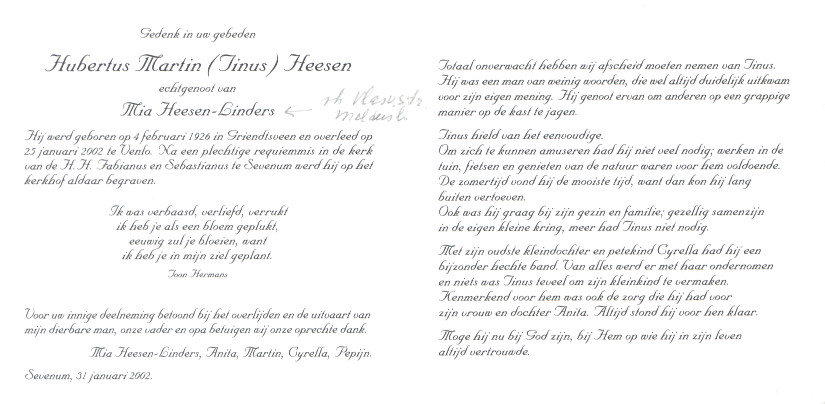 Gedenk in uw gebeden
Hubertus Martin (Tinus) Heesen
echtgenoot van
Mia Heesen-Linders
Hij werd geboren op 4 februari 1926 in Griendtsveen en overleed op
25 januari 2002 te Venlo. Na een plechtige requiemmis in de kerk
van de H.H. Fabianus en Sebastianus te Sevenum werd hij op het
kerkhof aldaar begraven.
Ik was verbaasd, verliefd, verrukt
ik heb je als een bloem geplukt,
eeuwig zul je bloeien, want
ik heb je in mijn ziel geplant.
Toon Hermans
Voor uw innige deelneming betoond bij het overlijden en de uitvaart van
mijn dierbare man, onze vader en opa betuigen wij onze oprechte dank.
Mia Heesen-Linders, Anita, Martin, Cyrella, Pepijn.
Sevenum, 31 januari 2002.
Totaal onverwacht hebben wij afscheid moeten nemen van Tinus.
Hij was een man van weinig woorden, die wel altijd duidelijk uitkwam
voor zijn eigen mening. Hij genoot ervan om anderen op een grappige
manier op de kast te jagen.
Tinus hield van het eenvoudige.
Om zich te kunnen amuseren had hij niet veel nodig; werken in de
tuin, fietsen en genieten van de natuur waren voor hem voldoende.
De zomertijd vond hij de mooiste tijd, want dan kon hij lang
buiten vertoeven.
Ook was hij graag bij zijn gezin en familie; gezellig samenzijn
in de eigen kleine kring, meer had Tinus niet nodig.
Met zijn oudste kleindochter en petekind Cyrella had hij een
bijzonder hechte band. Van alles werd er met haar ondernomen
en niets was Tinus teveel om zijn kleinkind te vermaken.
Kenmerkend voor hem was ook de zorg die hij had voor
zijn vrouw en dochter Anita. Altijd stond hij voor hen klaar.
Moge hij nu bij God zijn, bij Hem op wie hij in zijn leven
altijd vertrouwde.